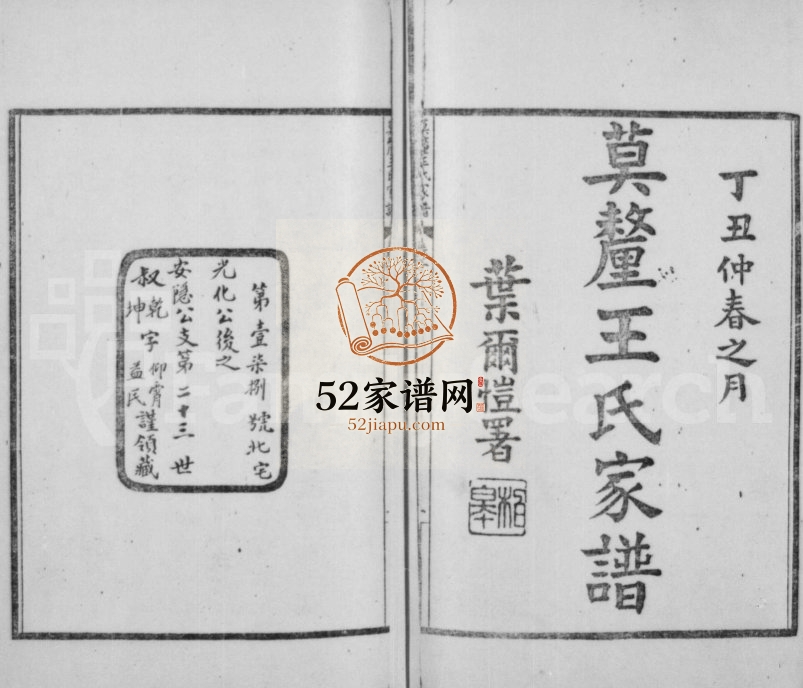 丁丑仲春之月
莫釐王氏家譜
葉爾愷署
柏皋
52家谱网
52jiapu.com
第壹柒捌號北宅
光化公後之
安隱公支第二十三世
叔乾字仰霄謹領藏
坤益民